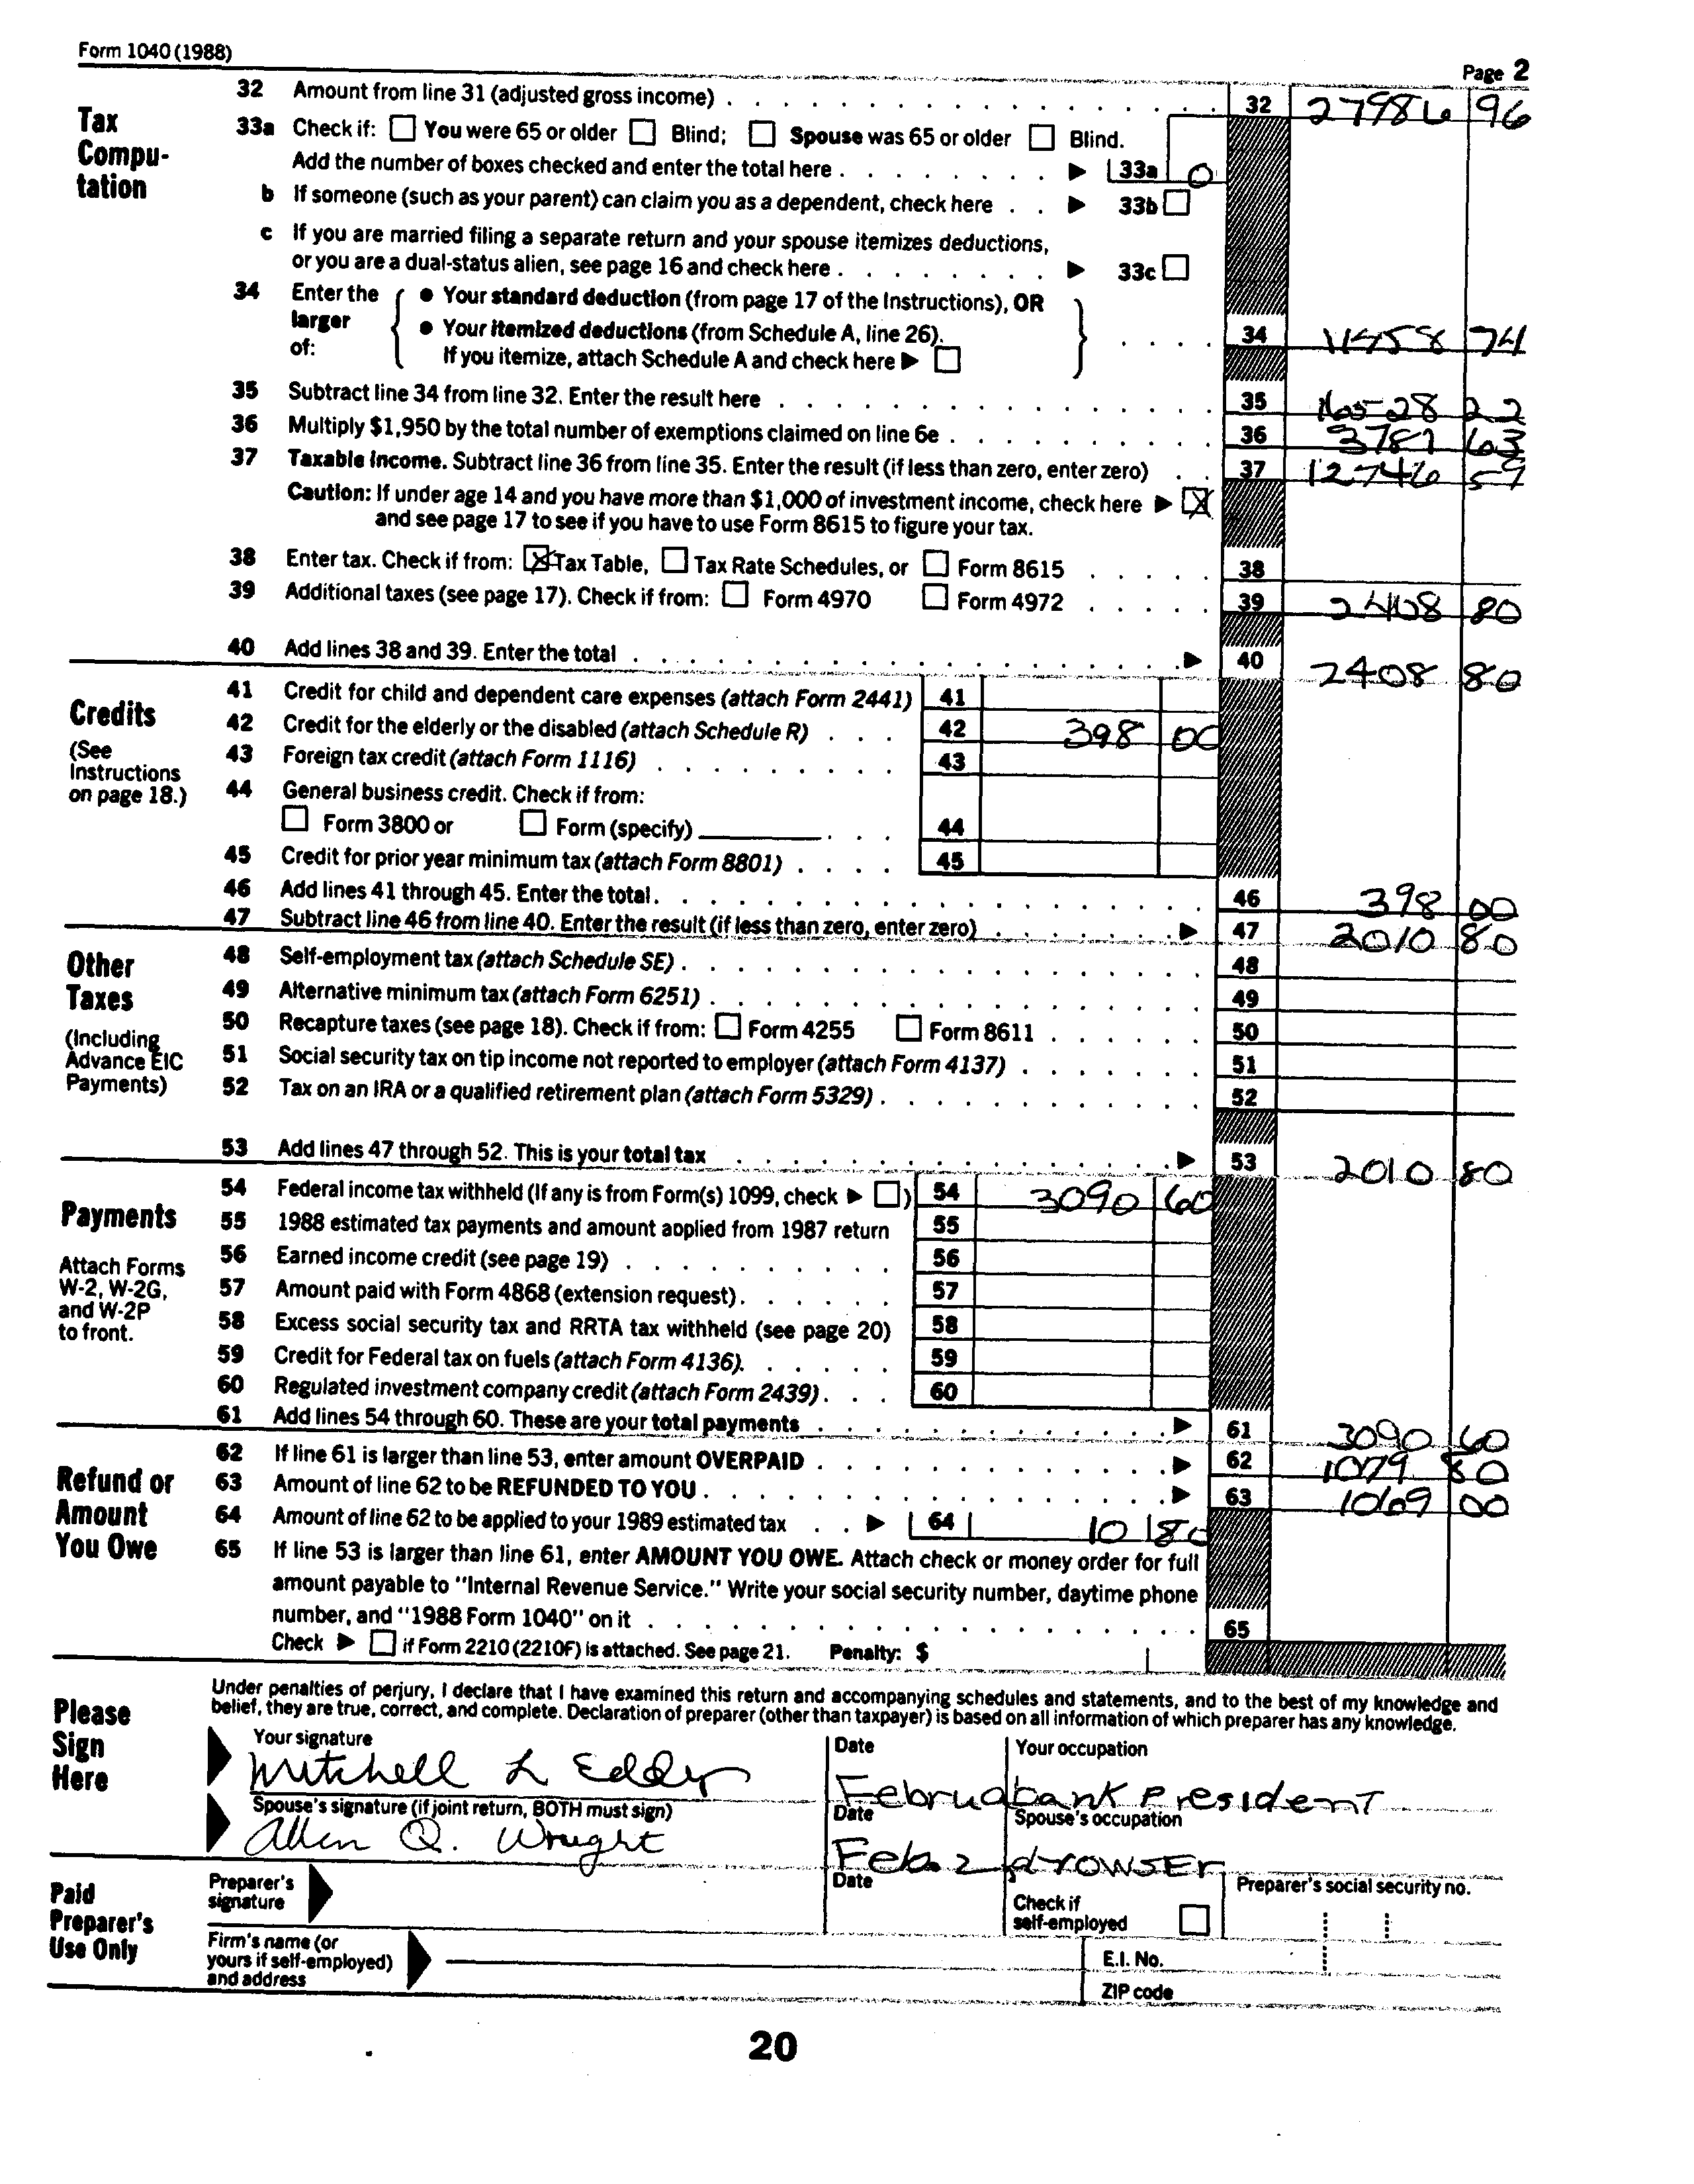 Form 1040 (1988)
Page 2
Tax Compu-tation
32 Amount from line 31 (adjusted gross income) . . . 32 27986 96
33a Check if: ☐ You were 65 or older ☐ Blind; ☐ Spouse was 65 or older ☐ Blind.
Add the number of boxes checked and enter the total here . . . ▶ 33a 0
b If someone (such as your parent) can claim you as a dependent, check here . . ▶ 33b ☐
c If you are married filing a separate return and your spouse itemizes deductions,
or you are a dual-status alien, see page 16 and check here . . . ▶ 33c ☐
34 Enter the larger of: { ● Your standard deduction (from page 17 of the Instructions), OR
● Your itemized deductions (from Schedule A, line 26).
If you itemize, attach Schedule A and check here ▶ ☐ } . . . . 34 11458 74
35 Subtract line 34 from line 32. Enter the result here . . . 35 16528 22
36 Multiply $1,950 by the total number of exemptions claimed on line 6e . . . 36 3781 63
37 Taxable income. Subtract line 36 from line 35. Enter the result (if less than zero, enter zero) . . 37 12746 59
Caution: If under age 14 and you have more than $1,000 of investment income, check here ▶ ☒
and see page 17 to see if you have to use Form 8615 to figure your tax.
38 Enter tax. Check if from: ☒ Tax Table, ☐ Tax Rate Schedules, or ☐ Form 8615 . . . . 38
39 Additional taxes (see page 17). Check if from: ☐ Form 4970 ☐ Form 4972 . . . . 39 2408 80
40 Add lines 38 and 39. Enter the total . . . ▶ 40 2408 80
Credits
(See Instructions on page 18.)
41 Credit for child and dependent care expenses (attach Form 2441) 41
42 Credit for the elderly or the disabled (attach Schedule R) . . . 42 398 00
43 Foreign tax credit (attach Form 1116) . . . 43
44 General business credit. Check if from:
☐ Form 3800 or ☐ Form (specify) . . . 44
45 Credit for prior year minimum tax (attach Form 8801) . . . . 45
46 Add lines 41 through 45. Enter the total. . . . 46 398 00
47 Subtract line 46 from line 40. Enter the result (if less than zero, enter zero) . . . ▶ 47 2010 80
Other Taxes
(Including Advance EIC Payments)
48 Self-employment tax (attach Schedule SE) . . . 48
49 Alternative minimum tax (attach Form 6251) . . . 49
50 Recapture taxes (see page 18). Check if from: ☐ Form 4255 ☐ Form 8611 . . . 50
51 Social security tax on tip income not reported to employer (attach Form 4137) . . . 51
52 Tax on an IRA or a qualified retirement plan (attach Form 5329) . . . 52
53 Add lines 47 through 52. This is your total tax . . . ▶ 53 2010 80
Payments
Attach Forms W-2, W-2G, and W-2P to front.
54 Federal income tax withheld (If any is from Form(s) 1099, check ▶ ☐) 54 3090 60
55 1988 estimated tax payments and amount applied from 1987 return 55
56 Earned income credit (see page 19) . . . 56
57 Amount paid with Form 4868 (extension request) . . . 57
58 Excess social security tax and RRTA tax withheld (see page 20) 58
59 Credit for Federal tax on fuels (attach Form 4136). . . . 59
60 Regulated investment company credit (attach Form 2439) . . . 60
61 Add lines 54 through 60. These are your total payments . . . ▶ 61 3090 60
Refund or Amount You Owe
62 If line 61 is larger than line 53, enter amount OVERPAID . . . ▶ 62 1079 80
63 Amount of line 62 to be REFUNDED TO YOU . . . ▶ 63 1069 00
64 Amount of line 62 to be applied to your 1989 estimated tax . . ▶ 64 10 80
65 If line 53 is larger than line 61, enter AMOUNT YOU OWE. Attach check or money order for full
amount payable to "Internal Revenue Service." Write your social security number, daytime phone
number, and "1988 Form 1040" on it . . . 65
Check ▶ ☐ if Form 2210 (2210F) is attached. See page 21. Penalty: $
Please Sign Here
Under penalties of perjury, I declare that I have examined this return and accompanying schedules and statements, and to the best of my knowledge and
belief, they are true, correct, and complete. Declaration of preparer (other than taxpayer) is based on all information of which preparer has any knowledge.
Your signature Date Your occupation
Mitchell L Eddy Februa bank President
Spouse's signature (if joint return, BOTH must sign) Date Spouse's occupation
Allen Q. Wright Feb. 2
Paid Preparer's Use Only
Preparer's signature Date Check if self-employed ☐ Preparer's social security no.
Firm's name (or yours if self-employed) and address E.I. No.
ZIP code
20